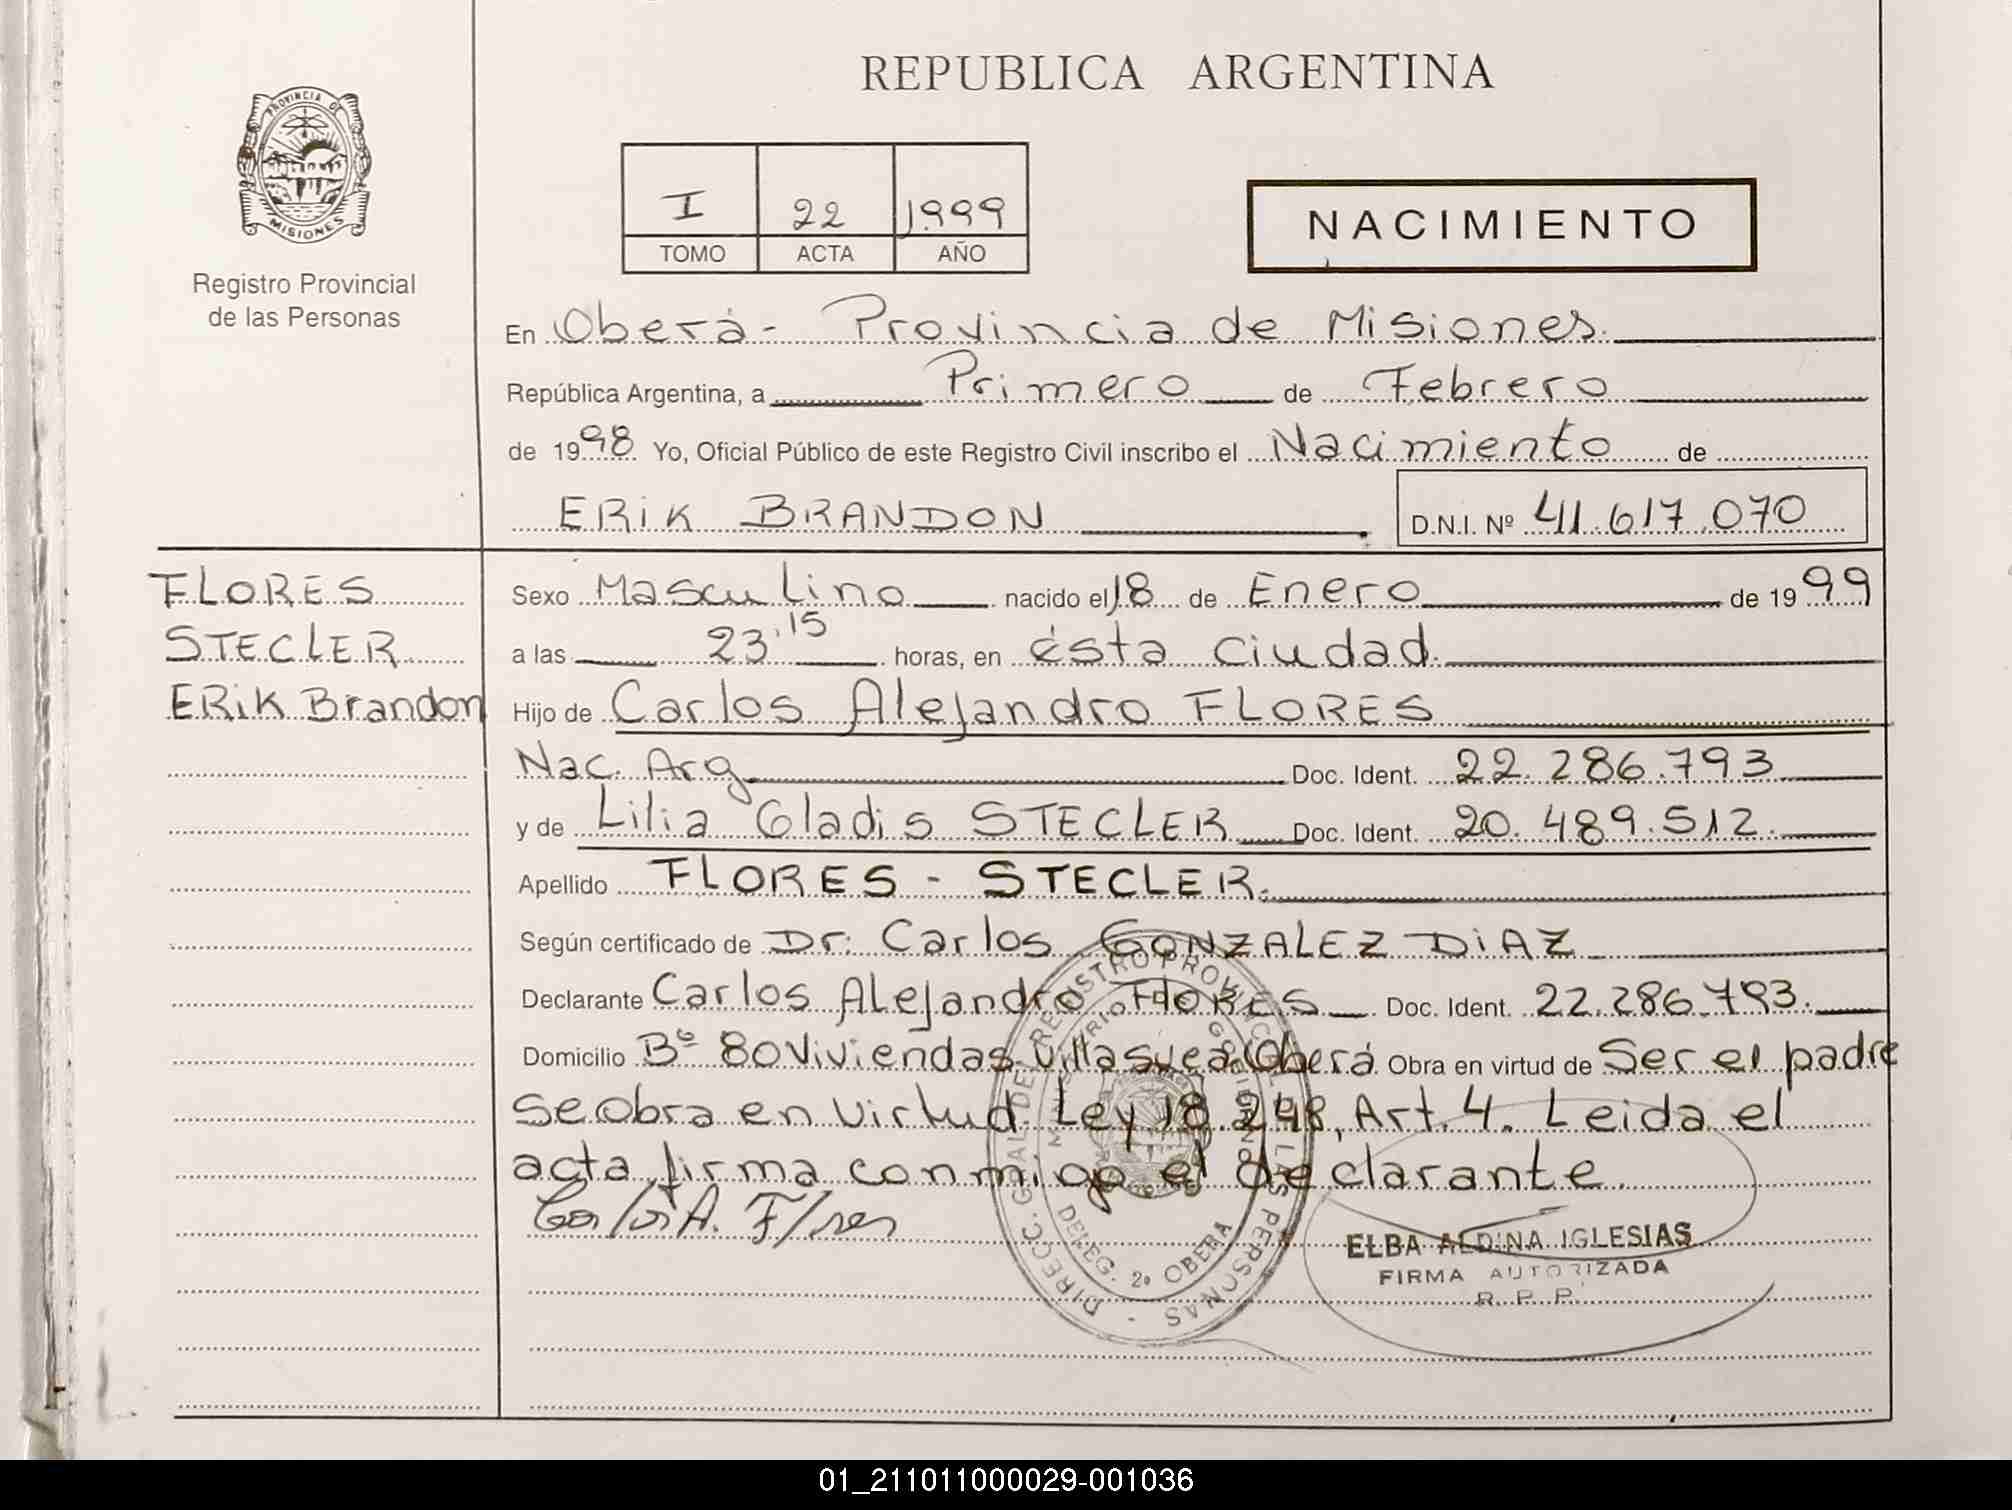 REPUBLICA ARGENTINA
PROVINCIA DE
MISIONES
Registro Provincial
de las Personas
I 22 1999
TOMO ACTA AÑO
NACIMIENTO
En Oberá- Provincia de Misiones.
República Argentina, a Primero de Febrero
de 1998 Yo, Oficial Público de este Registro Civil inscribo el Nacimiento de
ERIK BRANDON D.N.I. Nº 41.617.070
FLORES
STECLER
ERIK Brandon
Sexo Masculino nacido el 18 de Enero de 1999
a las 23,15 horas, en ésta ciudad.
Hijo de Carlos Alejandro FLORES
Nac. Arg. Doc. Ident. 22.286.793
y de Lilia Gladis STECLER Doc. Ident. 20.489.512.
Apellido FLORES - STECLER.
Según certificado de Dr: Carlos GONZALEZ DIAZ
Declarante Carlos ALejandro FLORES Doc. Ident. 22.286.793.
Domicilio Bº 80 Viviendas Villa Svea Oberá Obra en virtud de Ser el padre
se obra en virtud Ley 18.248, Art. 4. Leida el
acta firma conmigo el declarante.
Carlos A. Flores
DIRECC. GRAL DE REGISTRO PROVINCIAL DE LAS PERSONAS
DELEG. 2º OBERA
ELBA ALDINA IGLESIAS
FIRMA AUTORIZADA
R. P. P.
01_211011000029-001036